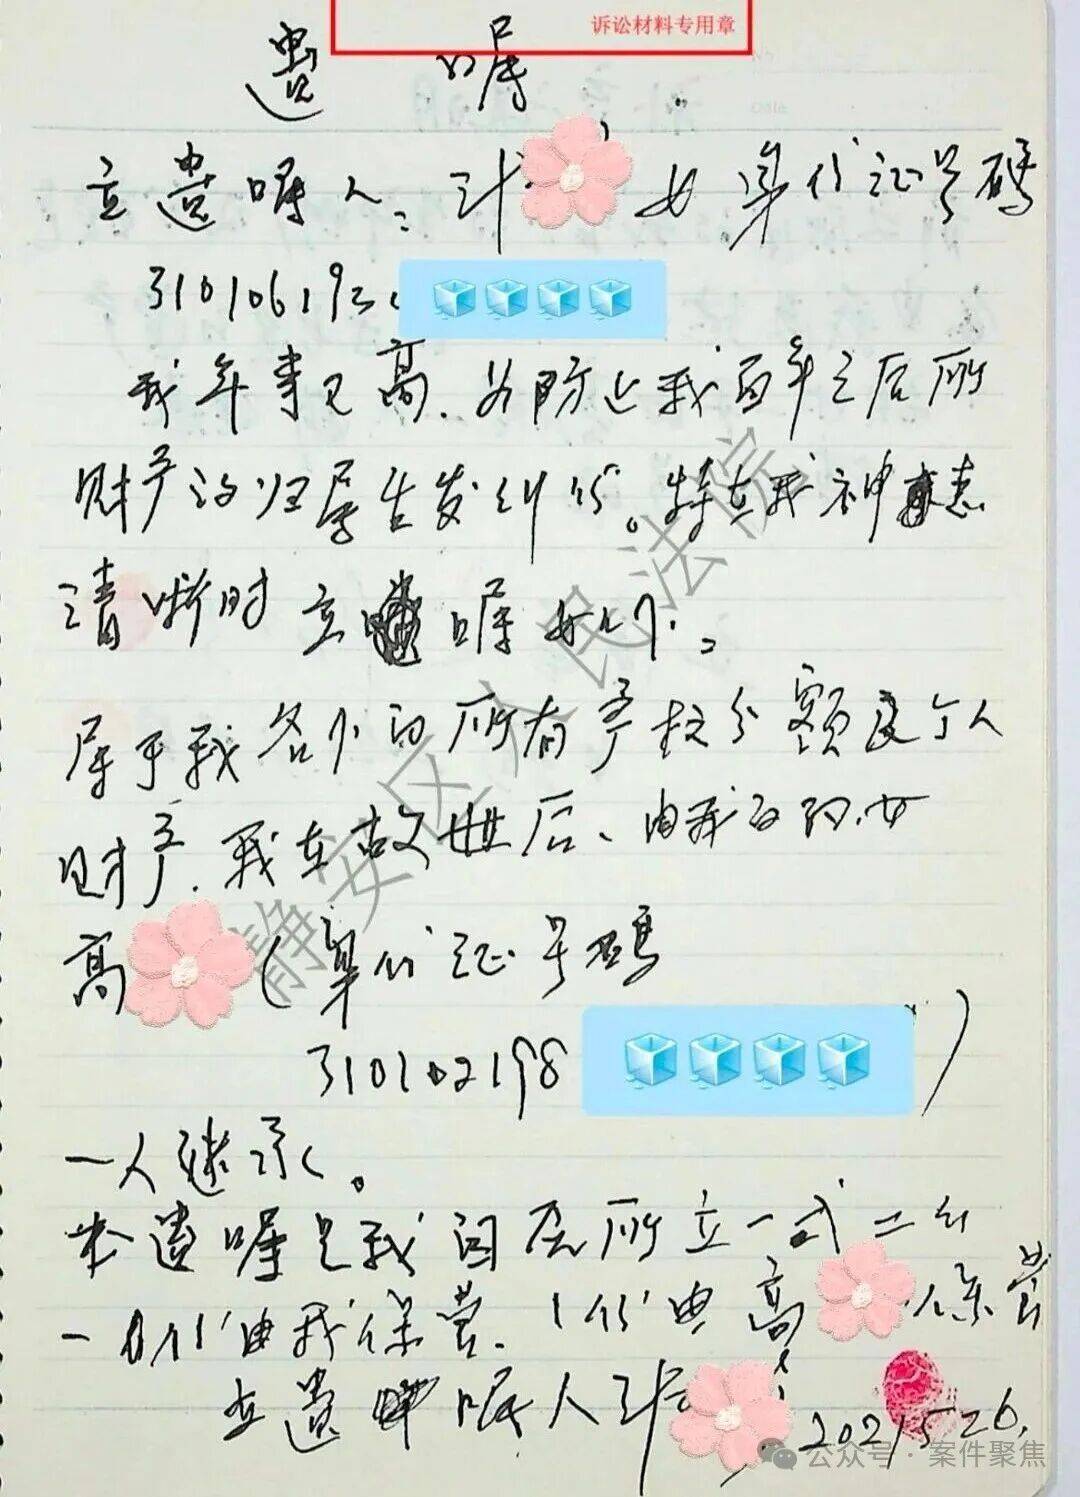 诉讼材料专用章
遗嘱
立遗嘱人：计 女 身份证号码
310106193
我年事已高．为防止我百年之后所
财产的归属发生纠纷。特在我神志
清晰时立遗嘱如下：
属于我名下的所有产权份额及个人
财产．我在故世后、由我的孙女
高 （身份证号码
310102198 ）
一人继承。
本遗嘱是我自愿所立一式二份
一份由我保管．一份由高 保管
立遗嘱人 计 2021526.
静安区人民法院
公众号·案件聚焦